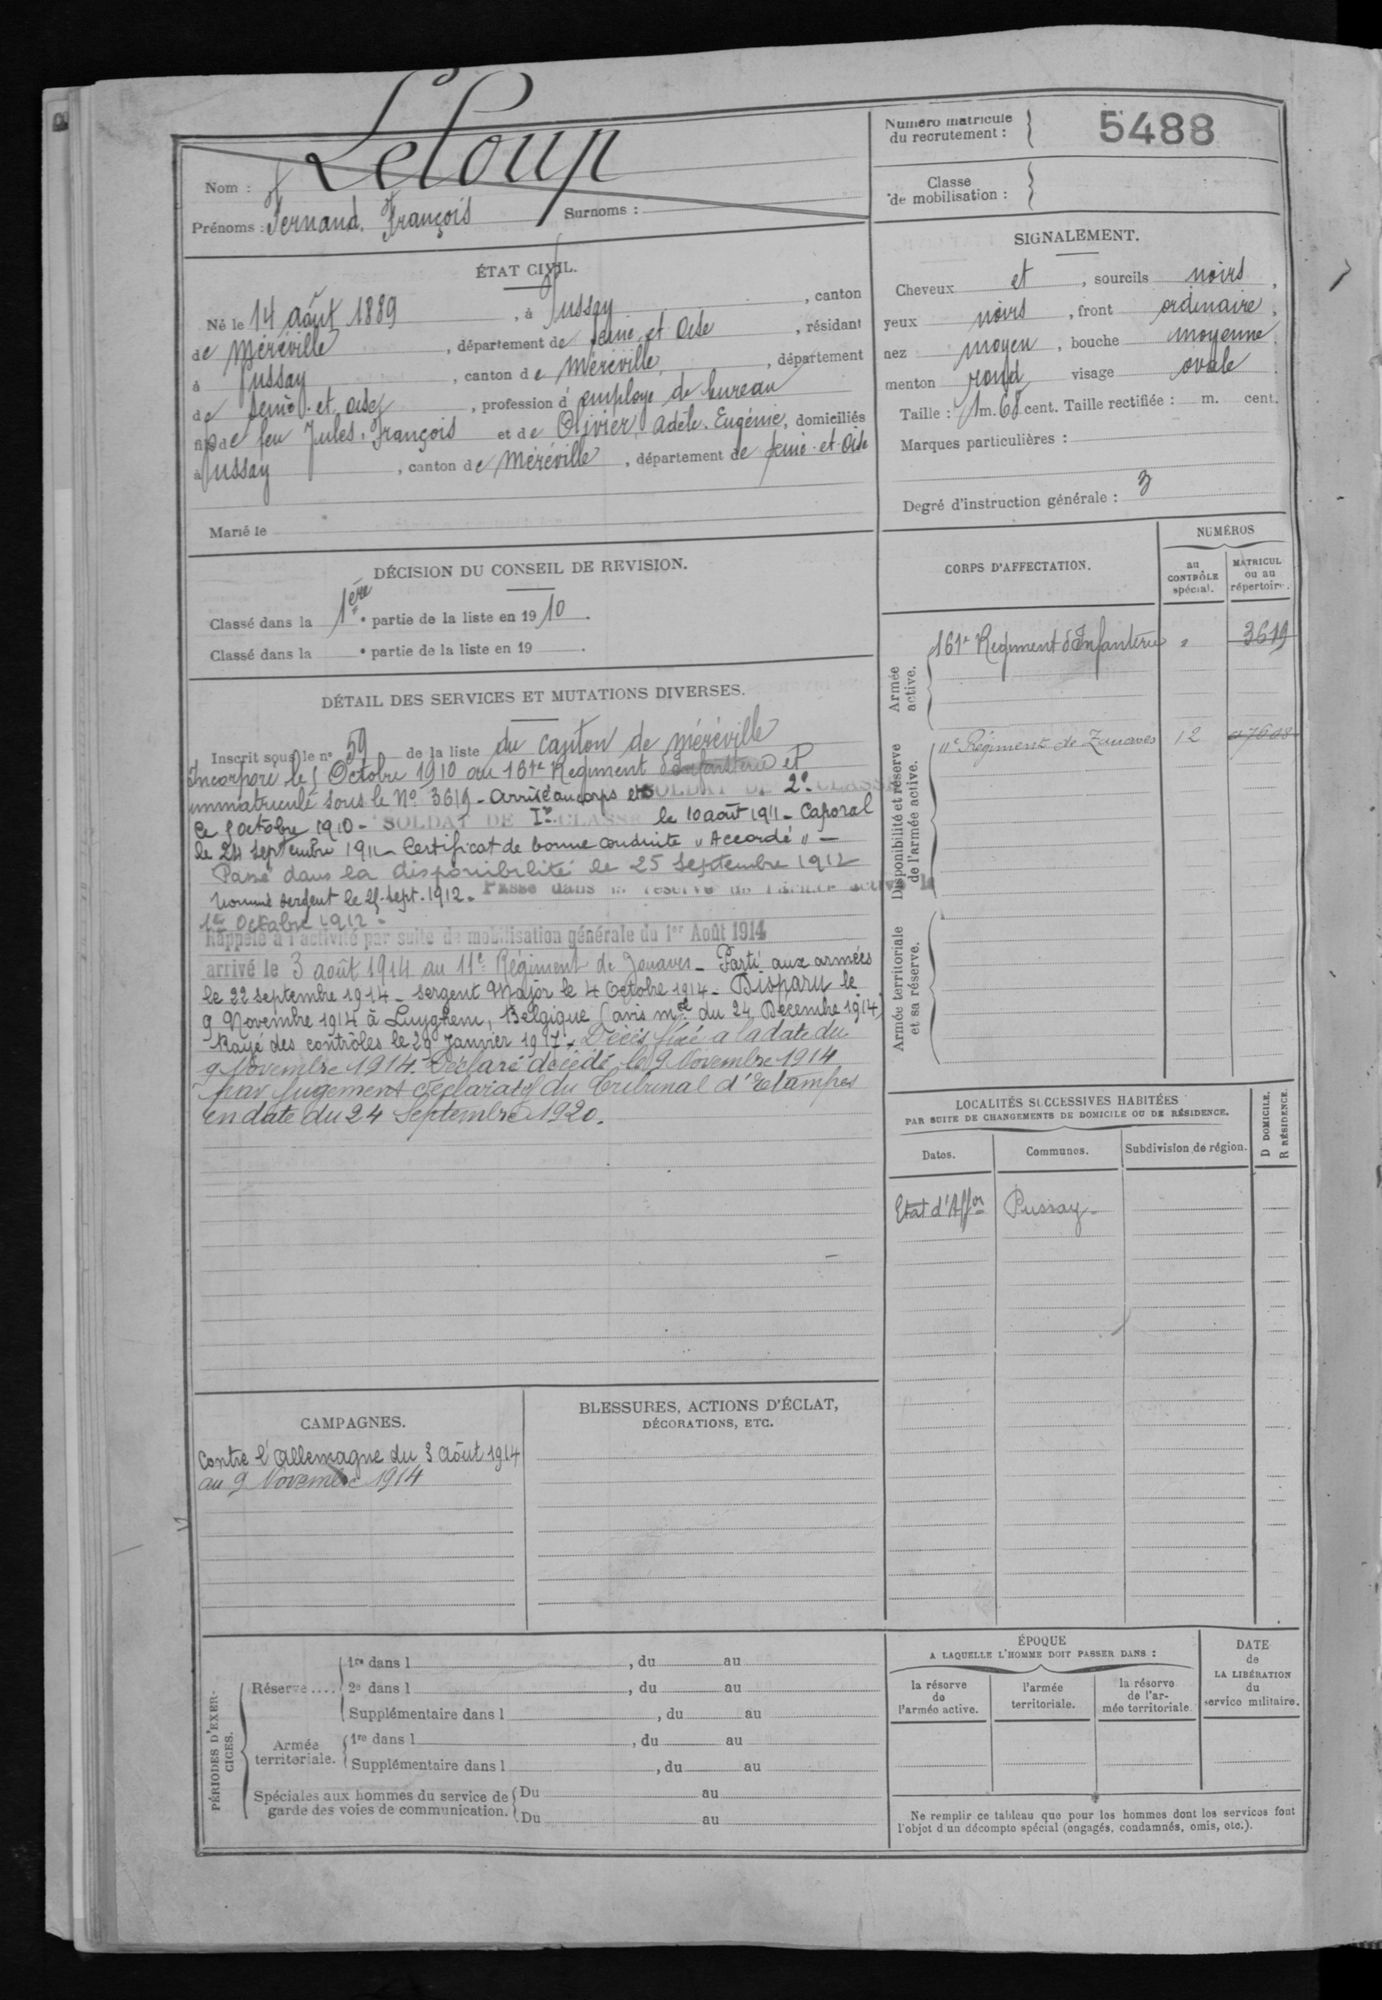 Leloup
Nom :
Prénoms : Fernand, François Surnoms :
Numéro matricule
du recrutement : 5488
Classe
de mobilisation :
ÉTAT CIVIL.
Né le 14 août 1889, à Pussay, canton
de Méréville, département de Seine et Oise, résidant
à Pussay, canton de Méréville, département
de Seine et Oise, profession d'employé de bureau
fils de feu Jules, François et de Olivier, Adèle, Eugénie, domiciliés
à Pussay, canton de Méréville, département de Seine-et-Oise
Marié le
SIGNALEMENT.
Cheveux et, sourcils noirs,
yeux noirs, front ordinaire,
nez moyen, bouche moyenne,
menton rond, visage ovale
Taille : 1 m. 68 cent. Taille rectifiée : m. cent.
Marques particulières :
Degré d'instruction générale : 3
DÉCISION DU CONSEIL DE REVISION.
Classé dans la 1ère partie de la liste en 1910.
Classé dans la • partie de la liste en 19 .
DÉTAIL DES SERVICES ET MUTATIONS DIVERSES.
Inscrit sous le n° 59 de la liste du canton de Méréville
Incorporé le 5 Octobre 1910 au 161e Régiment d'Infanterie et
immatriculé sous le No 3619 - Arrivé au corps et SOLDAT DE 2e CLASSE
le 5 octobre 1910 - SOLDAT DE Ire CLASSE le 10 août 1911 - Caporal
le 24 septembre 1911 - Certificat de bonne conduite "Accordé" -
Passé dans la disponibilité le 25 Septembre 1912
Nommé sergent le 25 sept. 1912. Passé dans la réserve de l'armée active le
1er Octobre 1912.
Rappelé à l'activité par suite de mobilisation générale du 1er Août 1914
arrivé le 3 août 1914 au 11e Régiment de Zouaves - Parti aux armées
le 22 septembre 1914 - Sergent Major le 4 Octobre 1914 - Disparu le
9 Novembre 1914 à Luyghem, Belgique (avis mel du 24 Décembre 1914)
Rayé des contrôles le 29 Janvier 1917. Décès fixé à la date du
9 Novembre 1914. Déclaré décédé le 9 Novembre 1914
par jugement déclaratif du Tribunal d'Etampes
en date du 24 Septembre 1920.
CORPS D'AFFECTATION.
NUMÉROS
au
CONTRÔLE
spécial.
MATRICUL
ou au
répertoire.
Armée
active.
161e Régiment d'Infanterie " 3619
Disponibilité et réserve
de l'armée active.
11e Régiment de Zouaves 12
Armée territoriale
et sa réserve.
LOCALITÉS SUCCESSIVES HABITÉES
PAR SUITE DE CHANGEMENTS DE DOMICILE OU DE RÉSIDENCE.
D DOMICILE.
R RÉSIDENCE.
Dates. Communes. Subdivision de région.
Etat d'Affon Pussay.
CAMPAGNES.
Contre l'Allemagne du 3 Août 1914
au 9 Novembre 1914
BLESSURES, ACTIONS D'ÉCLAT,
DÉCORATIONS, ETC.
PÉRIODES D'EXER-
CICES.
Réserve....
1re dans l , du au
2e dans l , du au
Supplémentaire dans l , du au
Armée
territoriale.
1re dans l , du au
Supplémentaire dans l , du au
Spéciales aux hommes du service de
garde des voies de communication.
Du au
Du au
ÉPOQUE
A LAQUELLE L'HOMME DOIT PASSER DANS :
la réserve
de
l'armée active.
l'armée
territoriale.
la réserve
de l'ar-
mée territoriale.
DATE
de
LA LIBÉRATION
du
service militaire.
Ne remplir ce tableau que pour les hommes dont les services font
l'objet d'un décompte spécial (engagés, condamnés, omis, etc.).